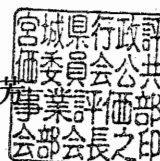 宮城県行政評
価委員会公共
事業評価部
会部会長之印
芳